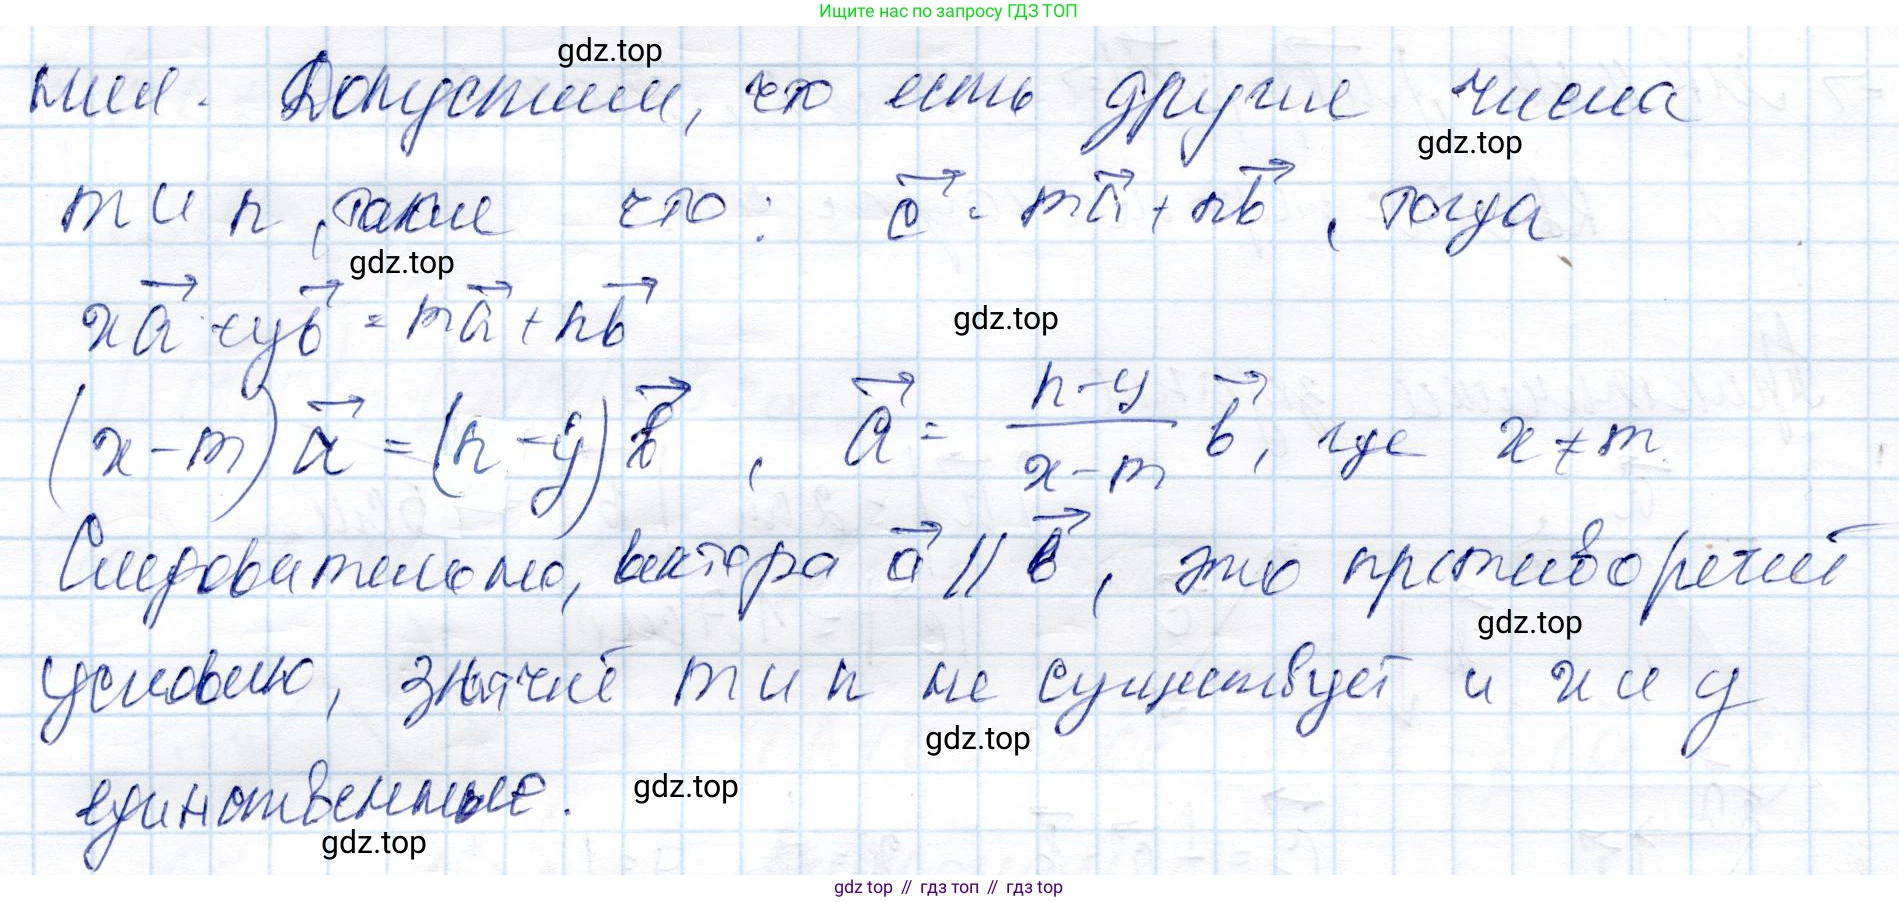 Ищите нас по запросу ГДЗ ТОП
gdz.top
ния. Допустим, что есть другие числа
gdz.top
m и n, такие что: c⃗ = ma⃗ + nb⃗, тогда
gdz.top
xa⃗ + yb⃗ = ma⃗ + nb⃗
gdz.top
(x-m)a⃗ = (n-y)b⃗, a⃗ = (n-y)/(x-m) b⃗, где x ≠ m
Следовательно, вектора a⃗ || b⃗, это противоречит
gdz.top
условию, значит m и n не существует и x и y
gdz.top
единственные.
gdz.top
gdz.top
gdz top // гдз топ // гдз top